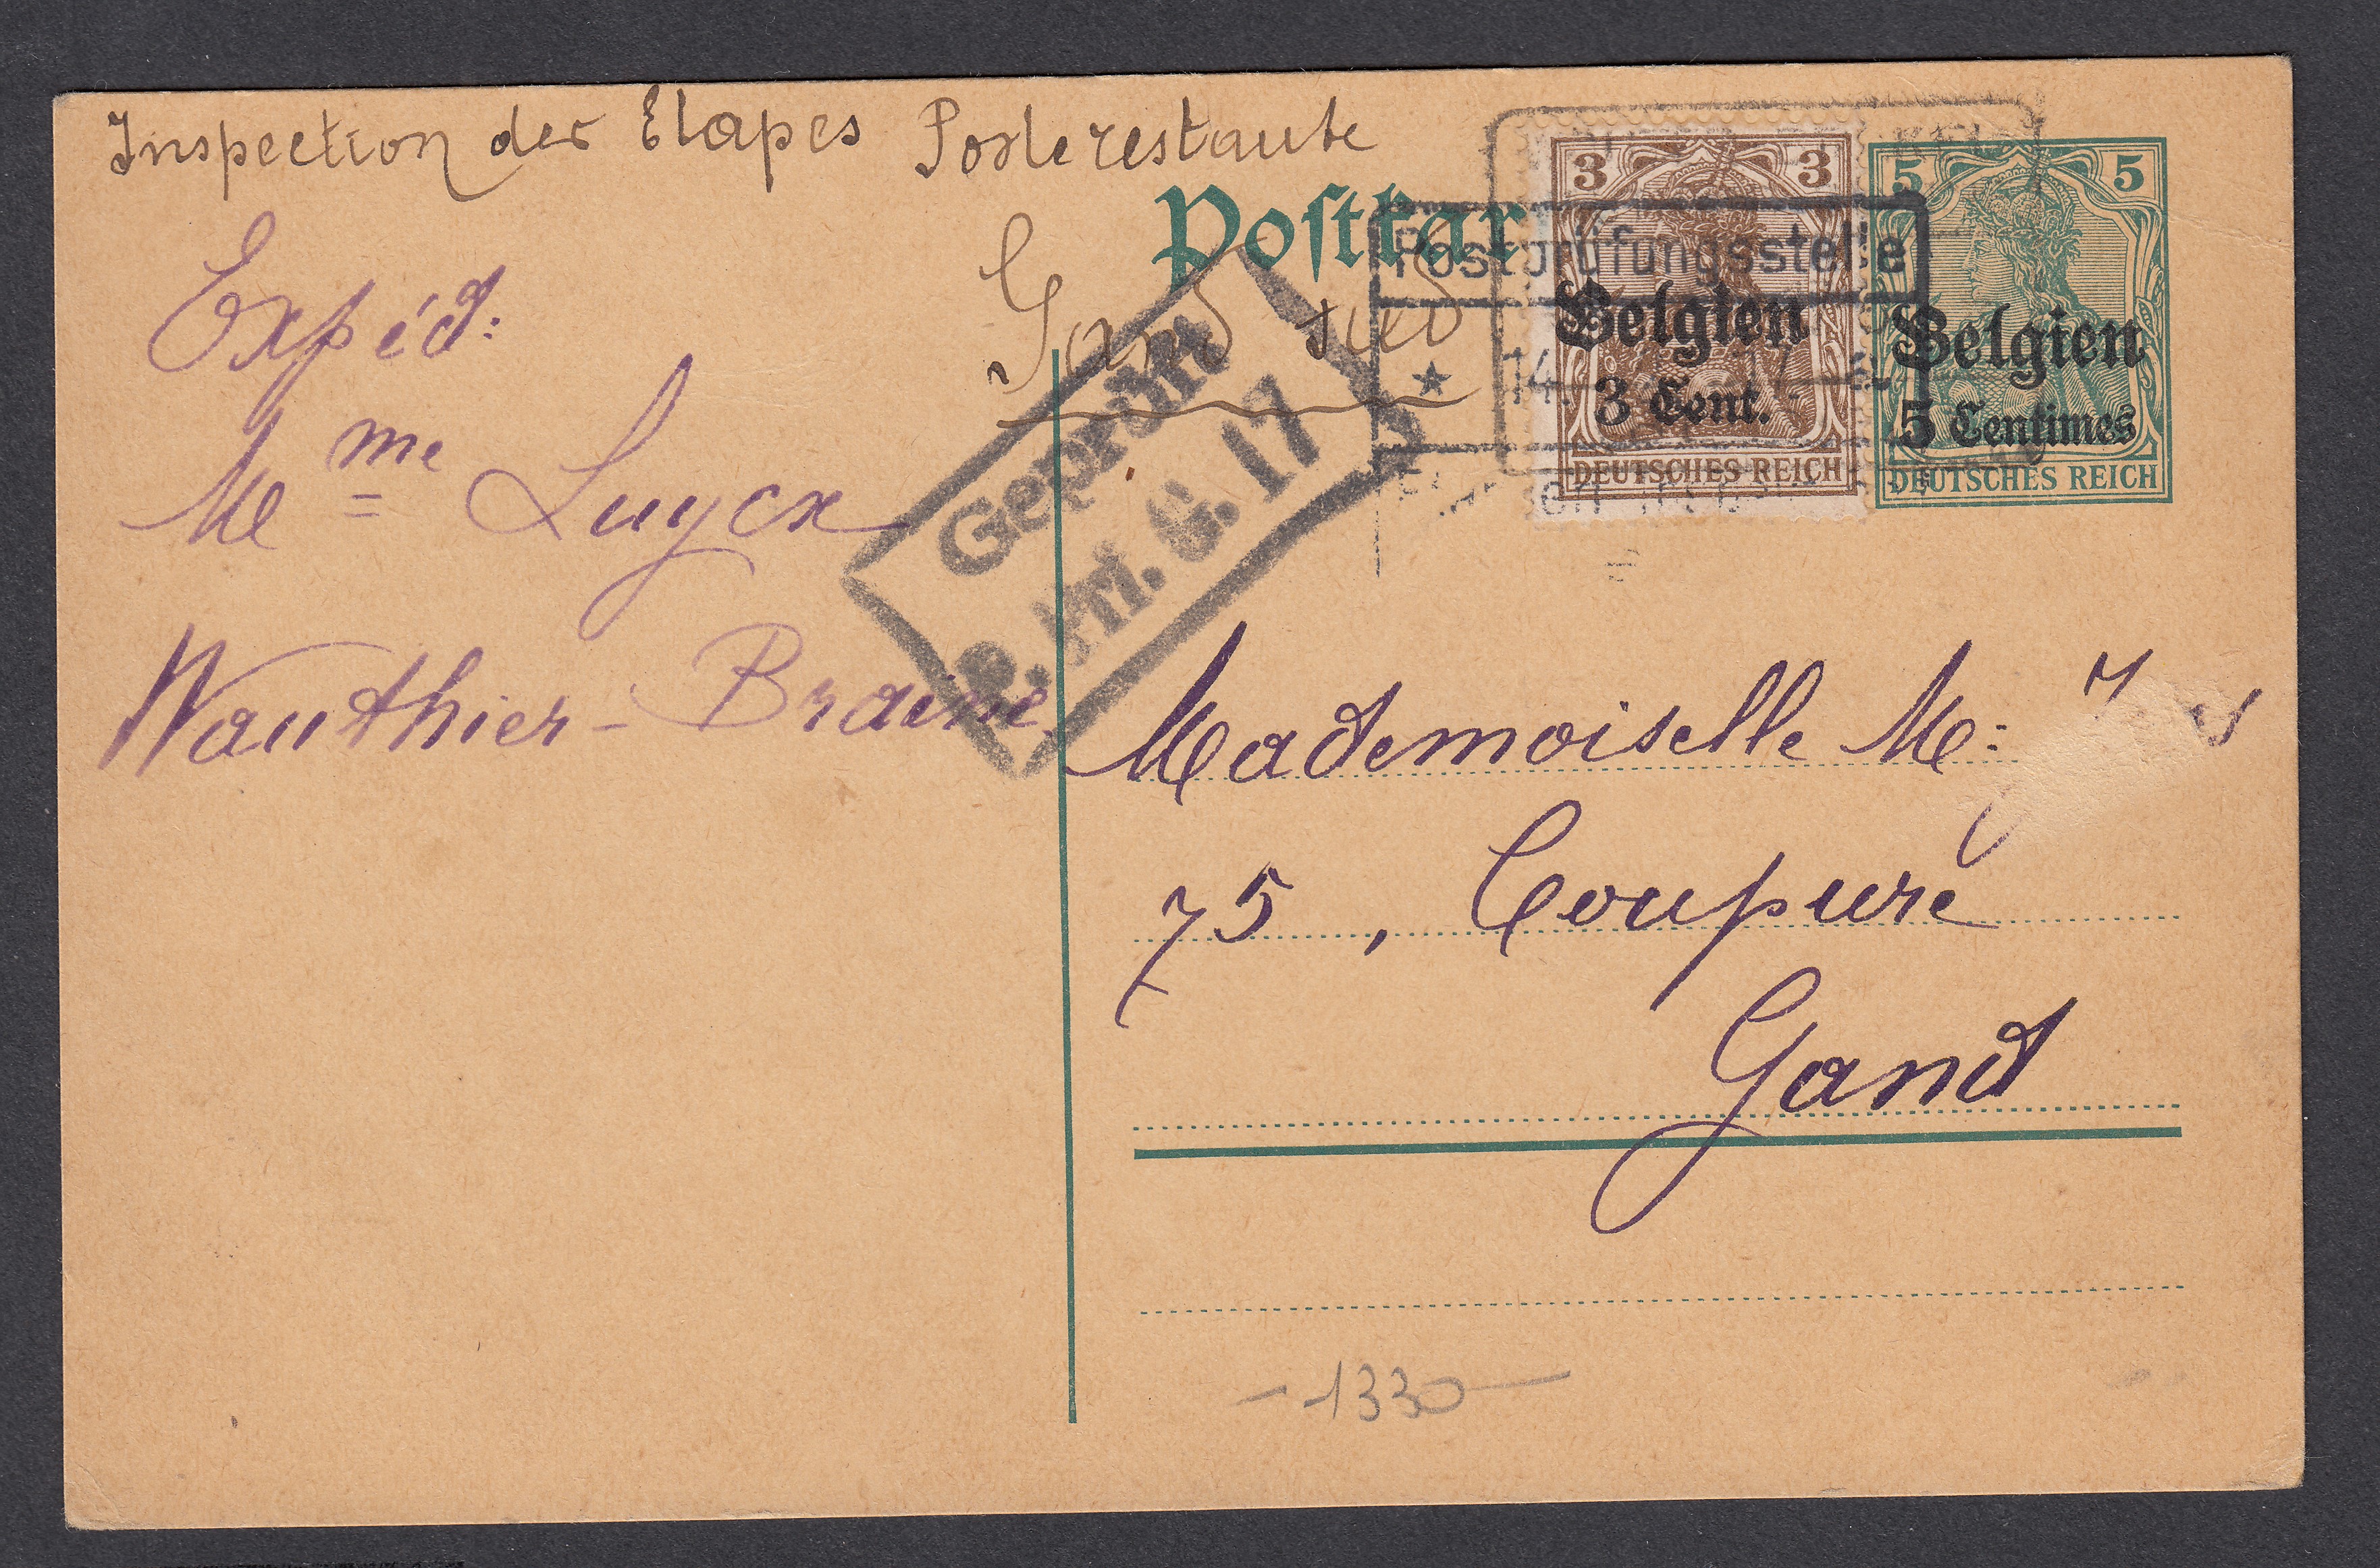 Inspection des Etapes Poste restante
Postkar
Gand sud
Expéd:
Mme Luycx
Wauthier-Braine
Geprüft
P. K. G. 17
Postprüfungsstelle
14.
3 3
Belgien
3 Cent.
DEUTSCHES REICH
5 5
Belgien
5 Centimes
DEUTSCHES REICH
Mademoiselle M:
75, Coupure
Gand
1330